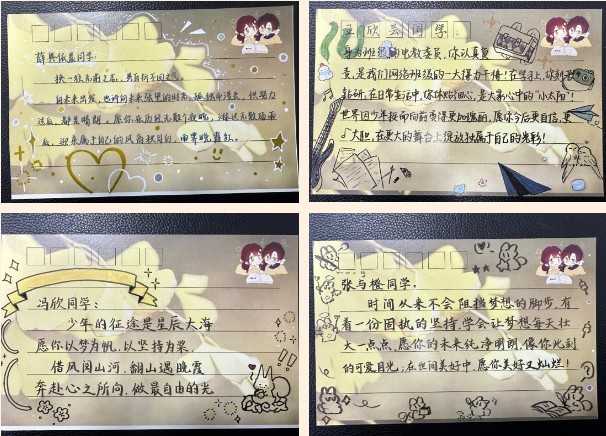 薛舞依蔓同学：
执一段无畏之志，勇自折不回之气。
向未来出发，也许向未来张望的时光，孤独而漫长，但努力
过后，都是晴朗。愿你在历经无数个夜晚，淋过无数场雨
后，迎来属于自己的风和秋月白，雨霁晚霞红。
王欣芸同学：
身为班级的电教委员，你认真负
责，是我们网络班级的一大得力干将！在学习上，你刻苦
钻研，在日常生活中，你体贴细心，是大家心中的“小太阳”！
世界因少年挺而向前更得更加瑰丽，愿你今后更自信，更
大胆，在更大的舞台上绽放独属于自己的光彩！
冯欣同学：
少年的征途是星辰大海
愿你以梦为帆，以坚持为桨，
借风阅山河，翻山遇晚霞
奔赴心之所向，做最自由的光
张与橙同学：
时间从来不会阻挡梦想的脚步，有
着一份固执的坚持，学会让梦想每天壮
大一点点，愿你的未来纯净明朗，像你此刻
的可爱目光；在世间美好中，愿你美好又灿烂！